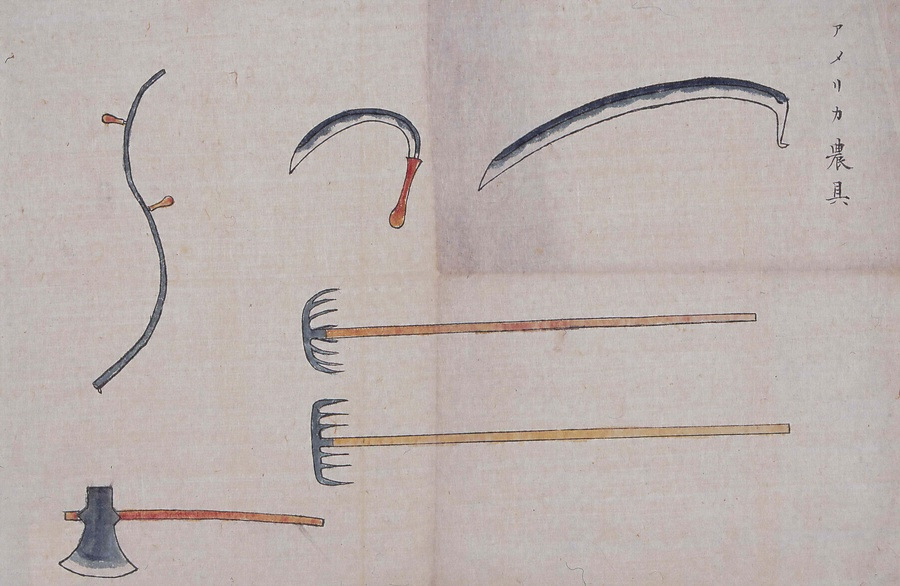 アメリカ農具